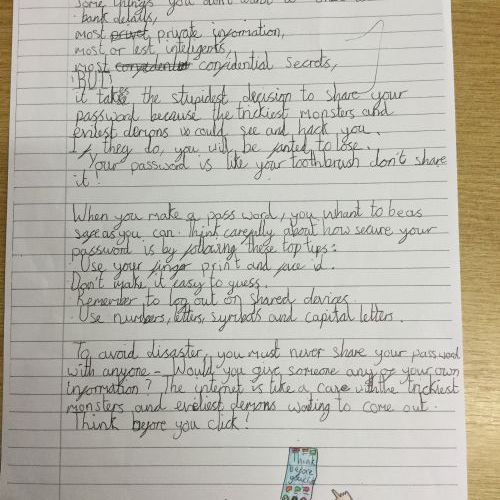 some things you don't want to
· bank details,
most privet private information,
most or lest, inteligents,
most confedentel confidential secrets,
BUT!
it takes the stupidest decision to share your
password because the trickiest monsters and
evilest demons would see and hack you.
If they do, you will be to lose.
Your password is like your toothbrush don't share
it!
When you make a pass word, you whant to be as
safe as you can. Think carefully about how secure your
password is by following these top tips:
· Use your finger print and face id.
· Don't make it easy to guess.
· Remember to log out on shared devices.
· Use numbers, letters, symbols and capital letters.
To avoid disaster, you must never share your password
with anyone - Would you give someone any of your own
information? The internet is like a cave with the trickiest
monsters and eveliest demons waiting to come out.
Think before you click!
Think
before
you click